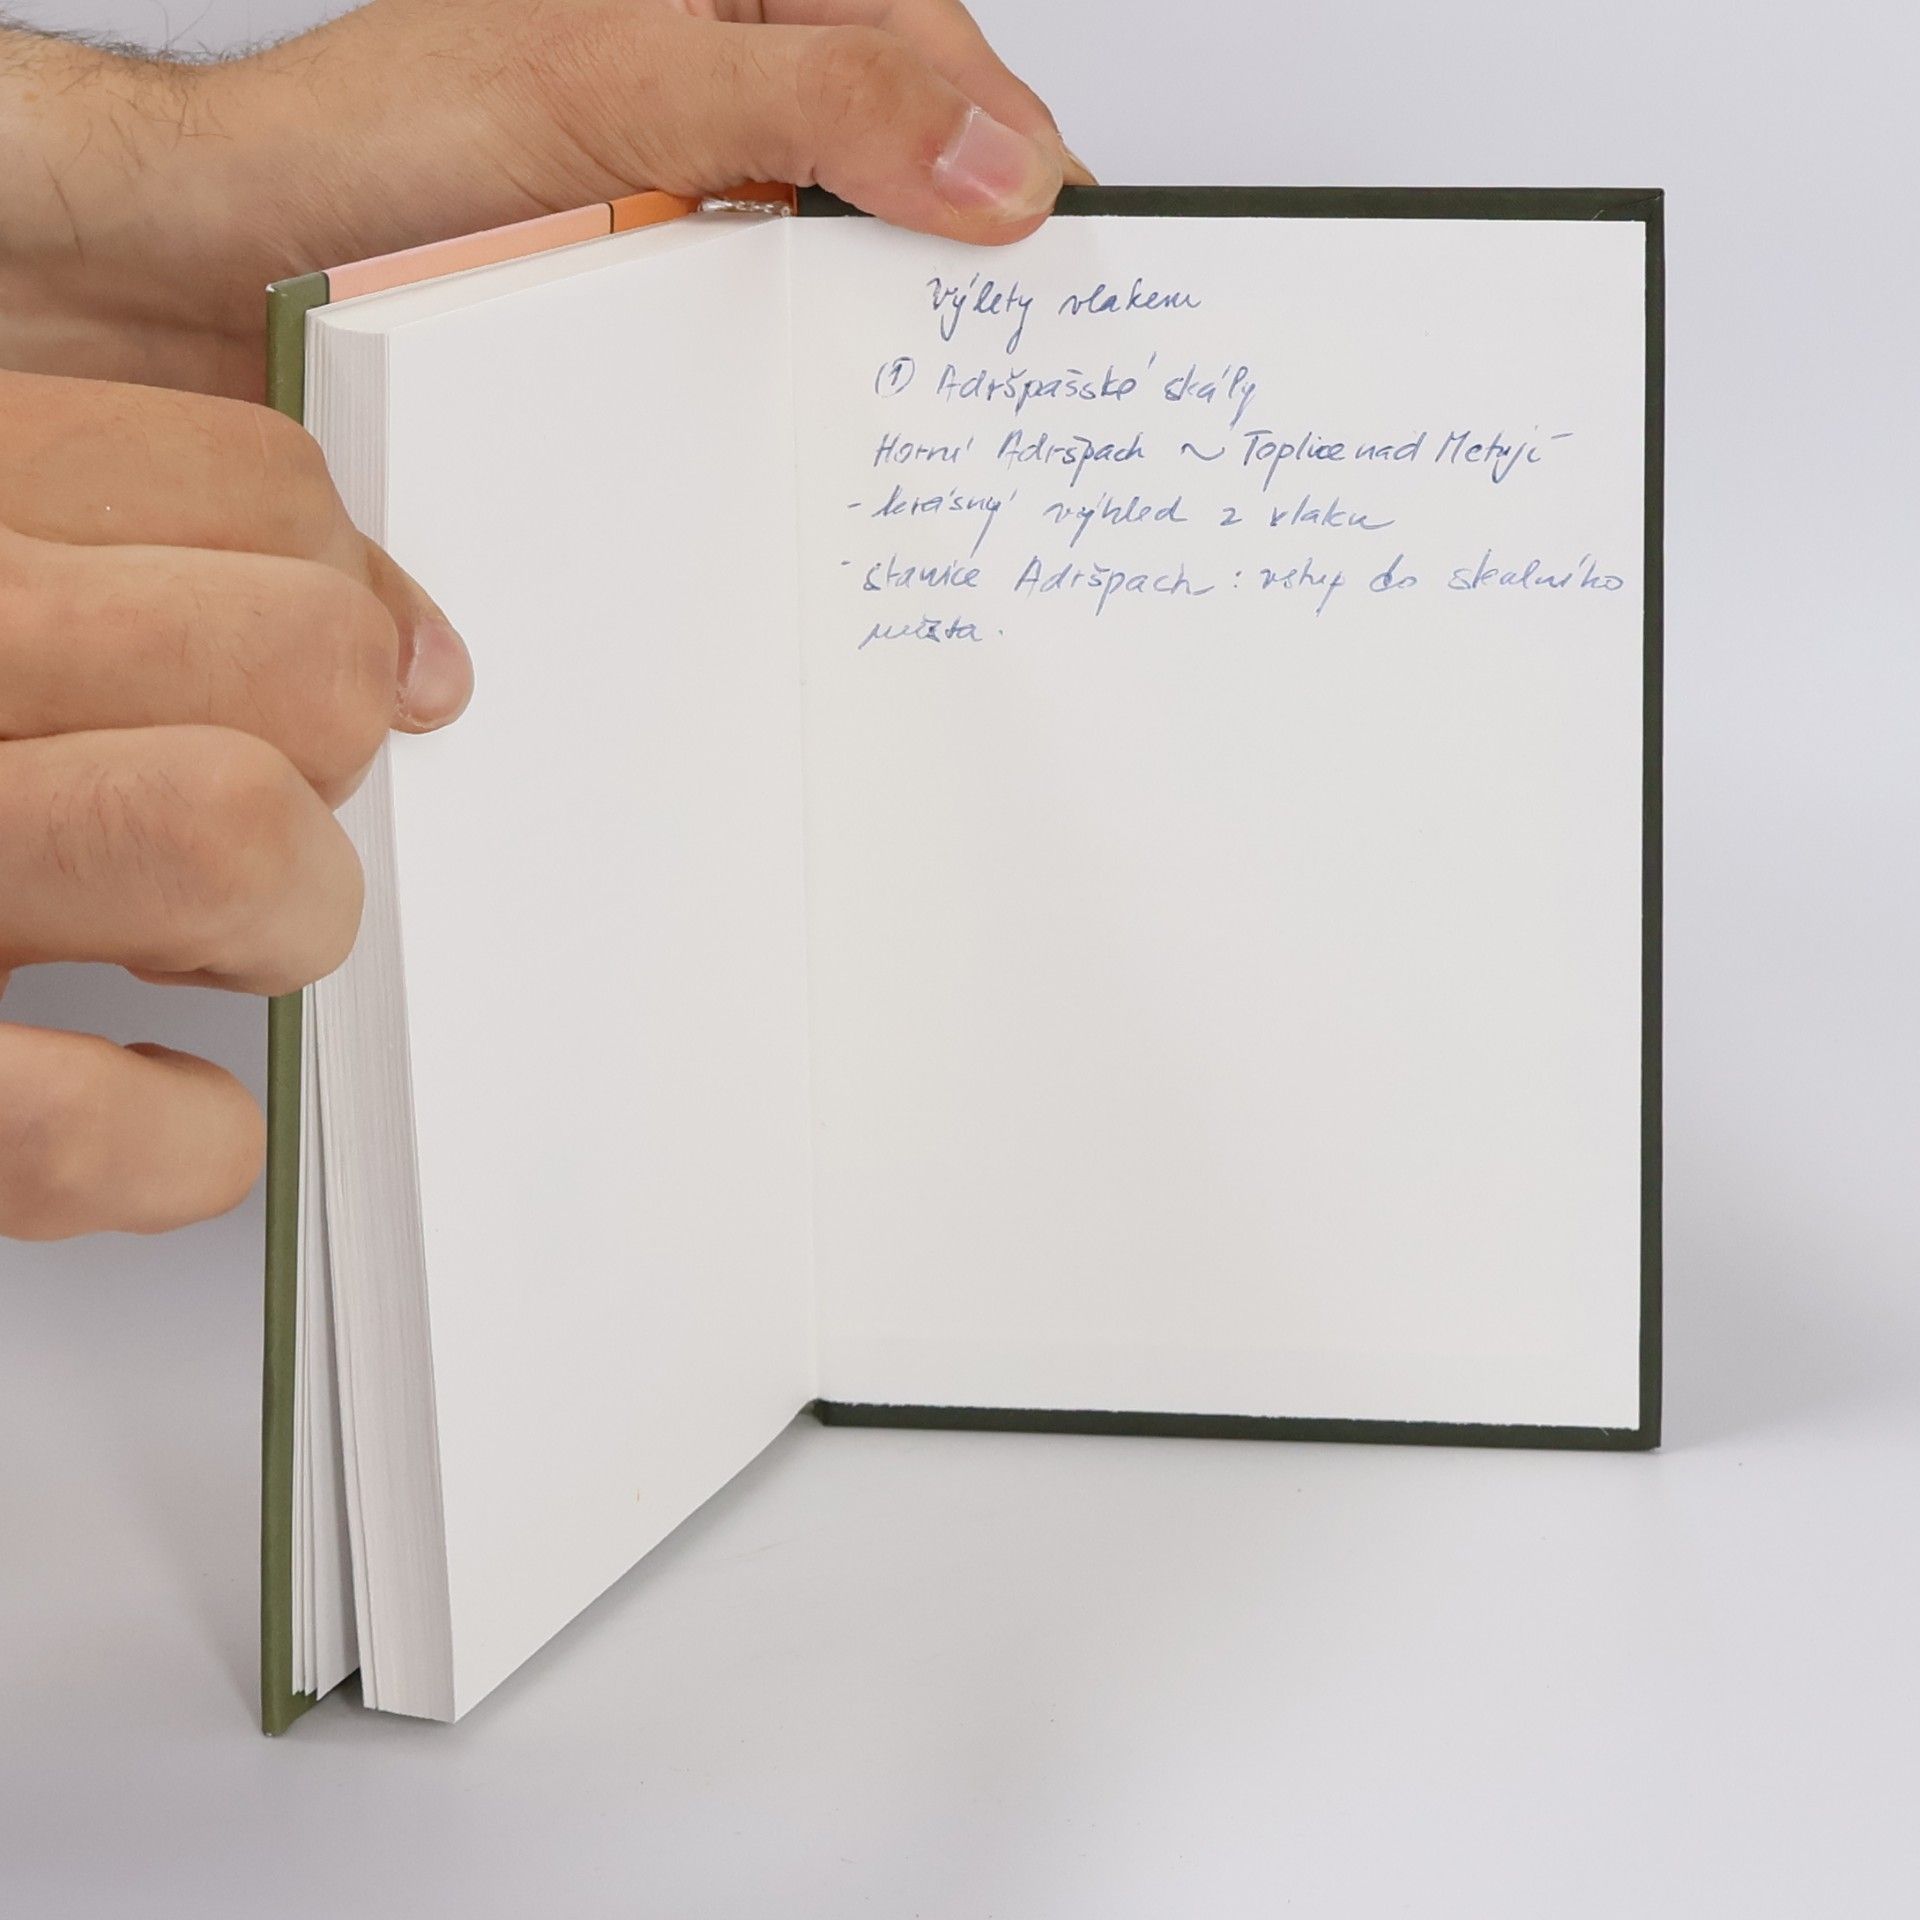 Výlety vlakem
① Adršpašské skály
Horní Adršpach ~ Toplice nad Metují
- krásný výhled z vlaku
- stanice Adršpach : vstup do skalního
města.